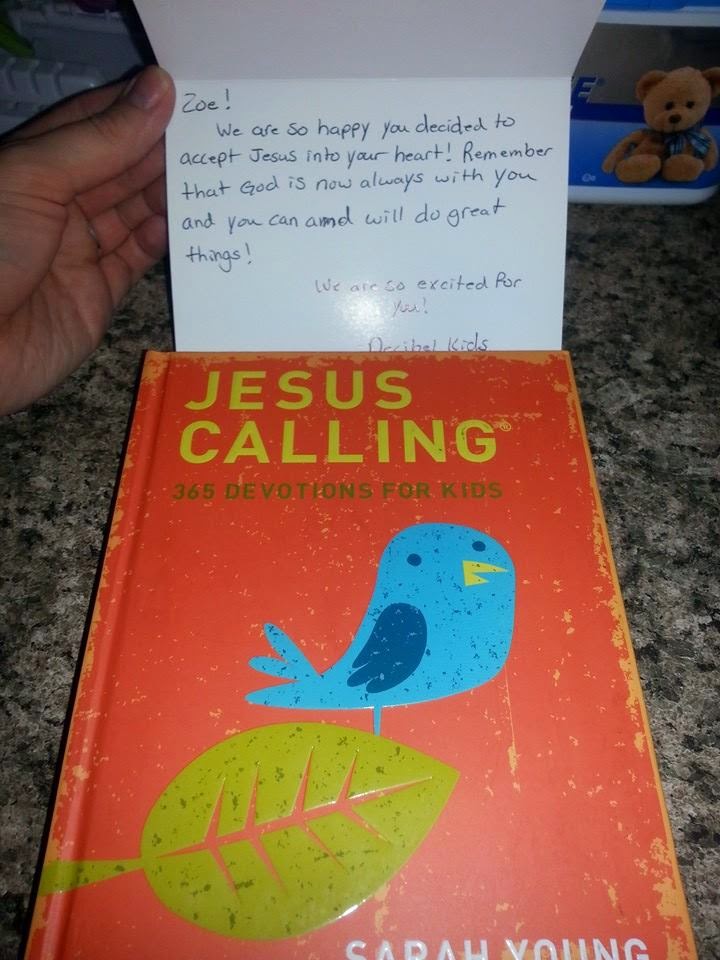 Zoe!
We are so happy you decided to
accept Jesus into your heart! Remember
that God is now always with you
and you can amd will do great
things!
We are so excited for
you!
-Decibel Kids
JESUS
CALLING®
365 DEVOTIONS FOR KIDS
SARAH YOUNG